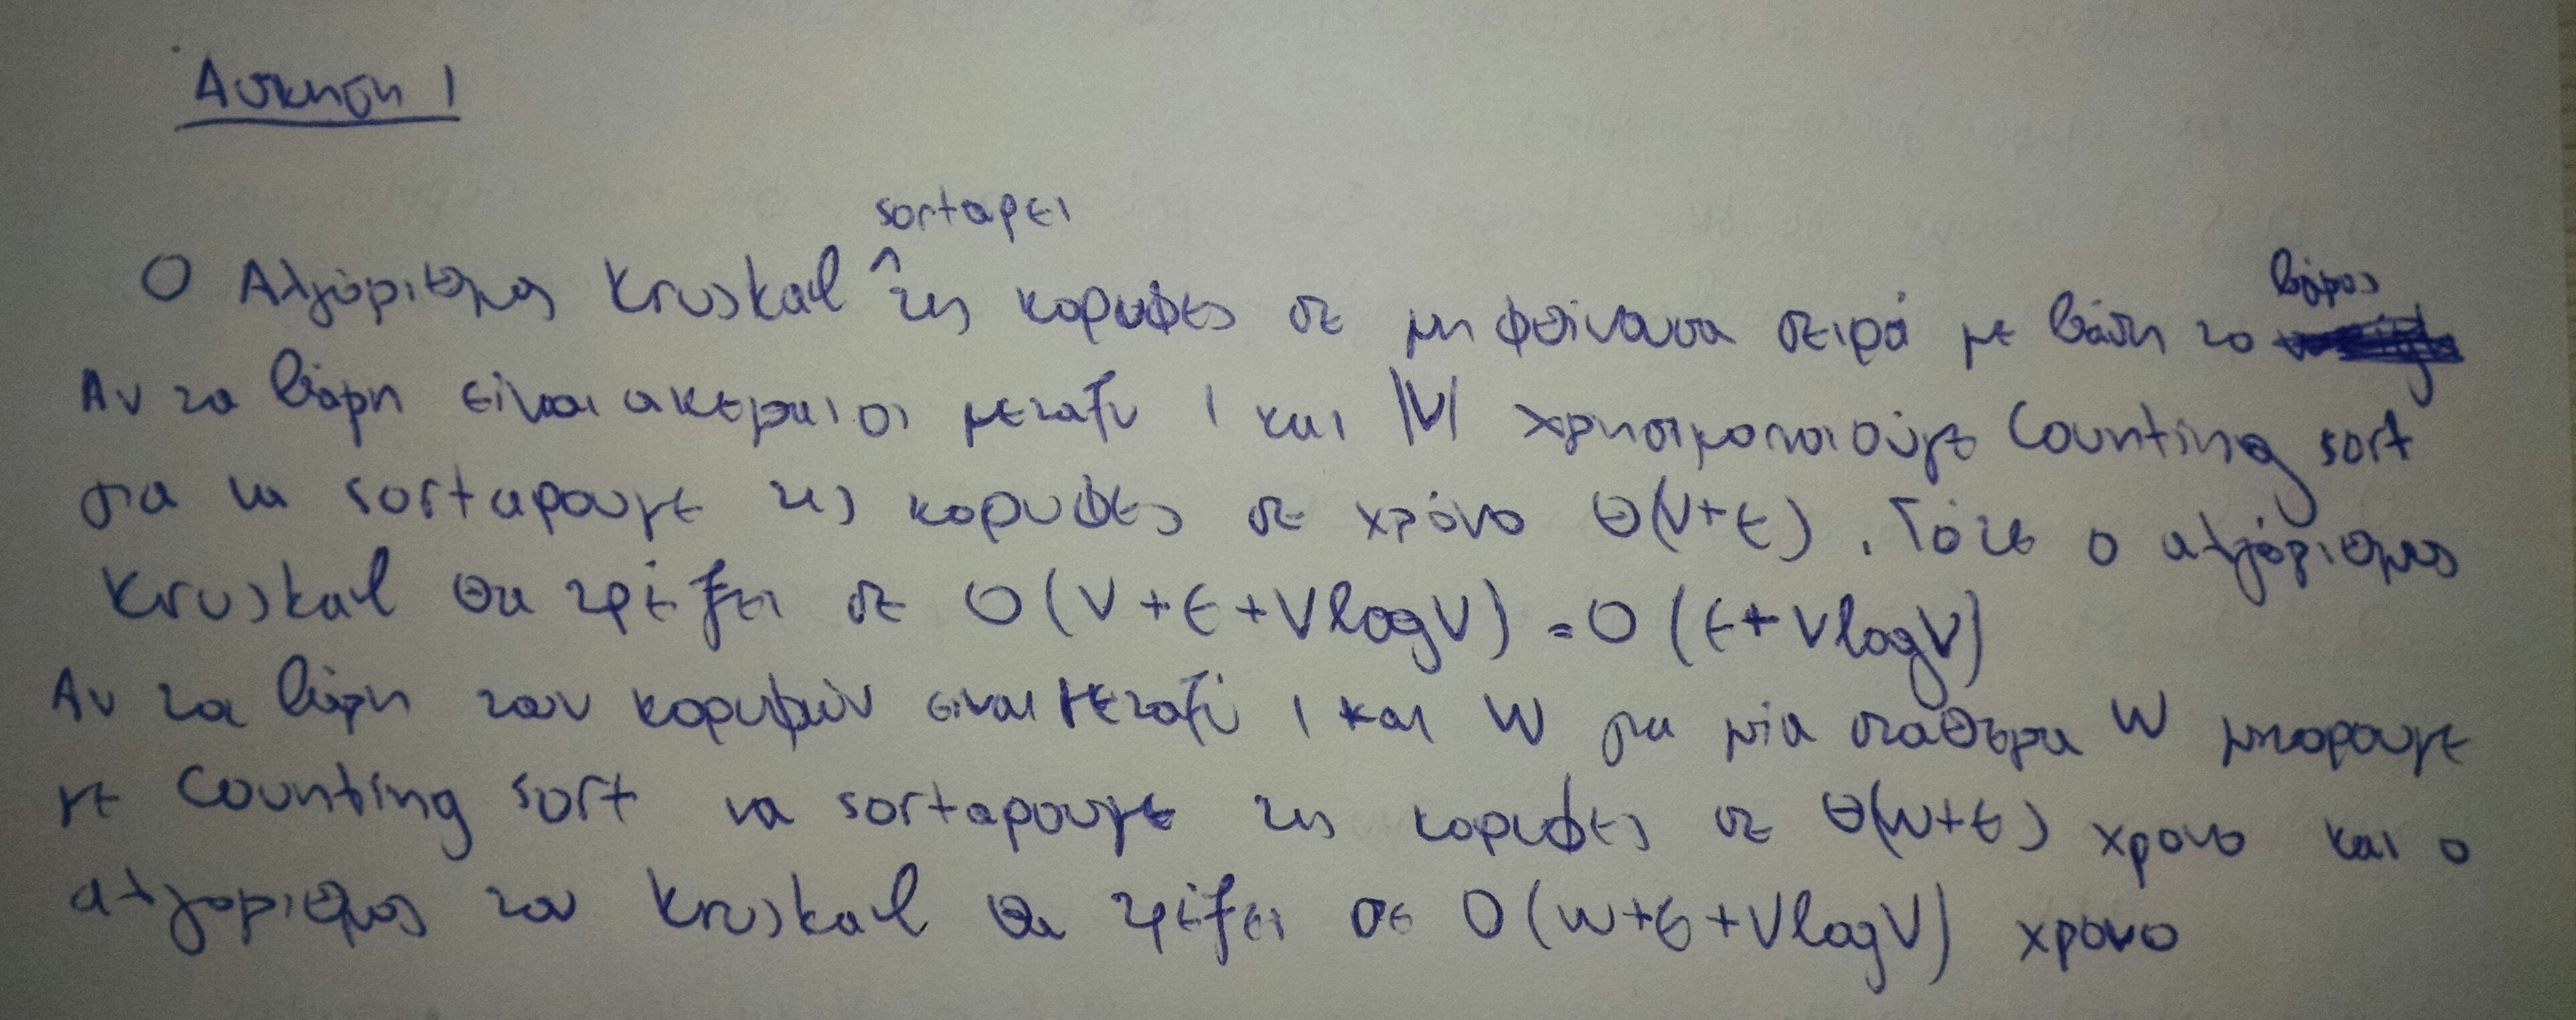 Ασκηση 1
sortαρει
Ο Αλγόριθμος Kruskal τις κορυφές σε μη φθίνουσα σειρά με βάση το βάρος
Αν τα βάρη είναι ακεραιοι μεταξυ 1 και |V| χρησιμοποιούμε Counting sort
για να sortαρουμε τις κορυφές σε χρόνο Θ(V+E). Τότε ο αλγόριθμος
Kruskal θα τρέξει σε O(V+E+VlogV) = O(E+VlogV)
Αν τα βάρη των κορυφών ειναι μεταξύ 1 και W για μία σταθερα W μπορουμε
με Counting sort να sortαρουμε τις κορυφές σε Θ(W+E) χρονο και ο
αλγοριθμος του Kruskal θα τρέξει σε O(W+E+VlogV) χρονο